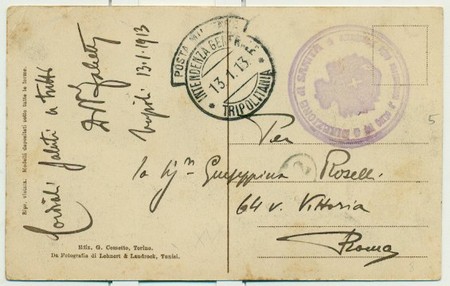 Cordiali saluti a tutti
Tripoli 13-1-1913
Ripr. vietata. Modelli depositati sotto tutte le forme.
Ediz. G. Cometto, Torino.
Da Fotografia di Lehnert & Landrock, Tunisi.
POSTA MILITARE
INTENDENZA GENERALE
13.1.13
TRIPOLITANIA
DIREZIONE di SANITÀ
Per
la Sigra Giuseppina Roselli
64 v. Vittoria
Roma
5